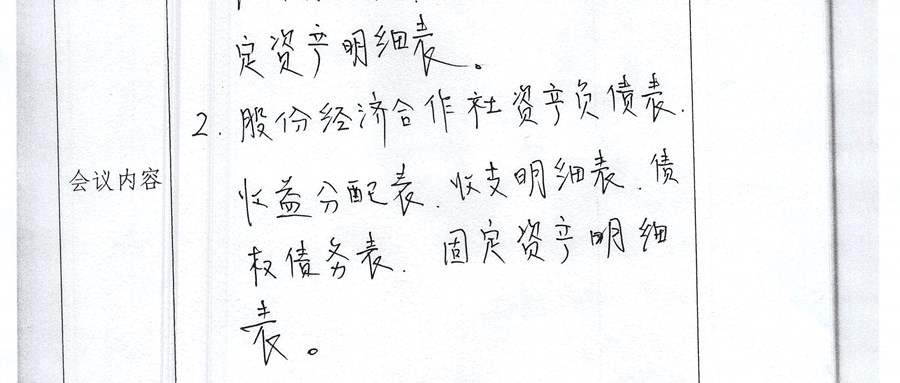 定资产明细表。
2. 股份经济合作社资产负债表.
会议内容
收益分配表. 收支明细表. 债
权债务表. 固定资产明细
表。